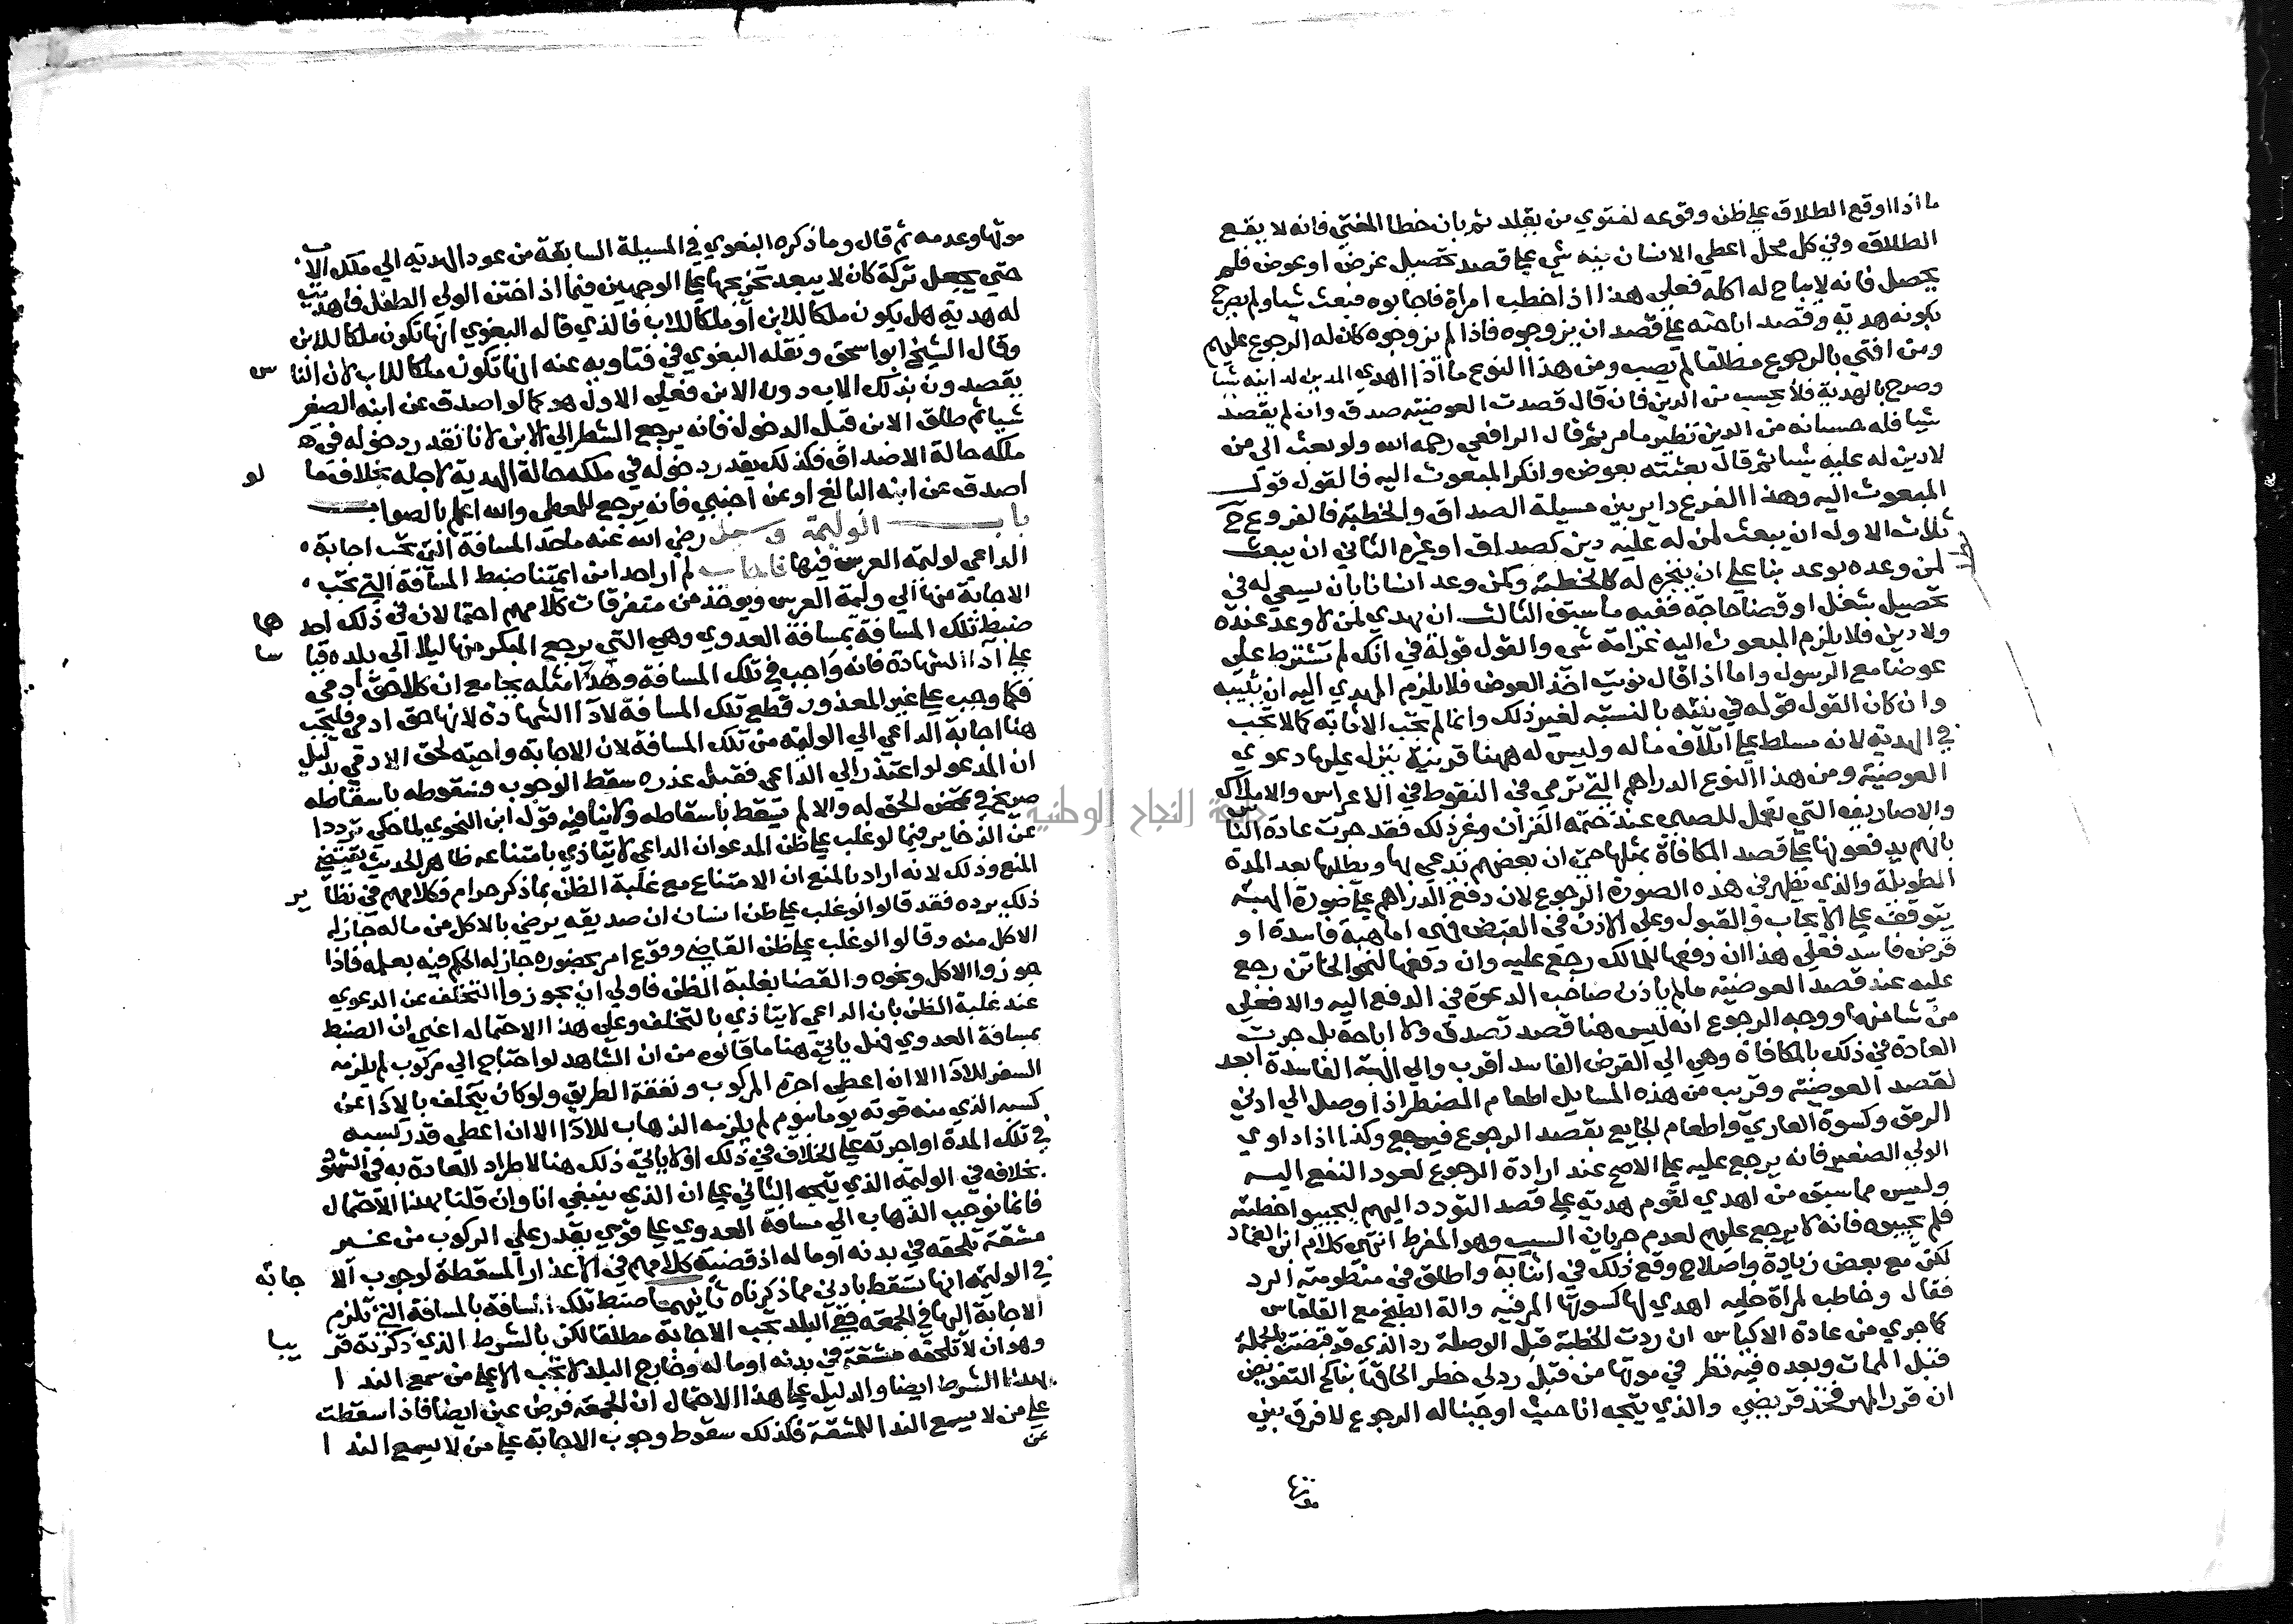 ما اذا اوقع الطلاق علي ظن وقوعه لفتوي من يقلد ثم بان خطا المفتي فانه لا يقع
الطلاق وفي كل محل اعطي الانسان بنيه شي علي قصد تحصيل غرض او عوض فلم
يحصل فانه لا يباح له اكله فعلي هذا اذا خطب امراة فاجابوه فبعث شيا ولم يصرح
بكونه هدية وقصد اباحته علي قصد ان يزوجوه فاذا لم يزوجوه كان له الرجوع عليهم
ومن افتي بالرجوع مطلقا لم يصب ومن هذا النوع ما اذا اهدي المدين لدائنه شيا
وصرح بالهدية فلا يحسب من الدين فان قال قصدت العوضية صدق وان لم يقصد
شيا فله حسبانه من الدين نظير ما مر ثم قال الرافعي رحمه الله ولو بعث الي من
لا دين له عليه شيا ثم قال بعثته بعوض وانكر المبعوث اليه فالقول قول
المبعوث اليه وهذا الفرع داير بين مسيلة الصداق والخطبة فالفروع ح
ثلاث الاول ان يبعث لمن له عليه دين كصداق او غرم الثاني ان يبعث
لمن وعده بوعد بنا علي ان ينجزه له كالخطبة وكمن وعد انسانا بان يسعي له في
تحصيل شغل او قضا حاجة ففيه ما سبق الثالث ان يهدي لمن لا وعد عنده
ولا دين فلا يلزم المبعوث اليه غرامة شي والقول قوله في انك لم تشترط علي
عوضا مع الرسول واما اذا قال نويت اخذ العوض فلا يلزم المهدي اليه ان يثيبه
وان كان القول قوله في نيته بالنسبة لغير ذلك وانما لم تجب الاثابة كما لا تجب
في الهدية لانه مسلط علي اتلاف ماله وليس له ههنا قرينة ينزل عليها دعوي
العوضية ومن هذا النوع الدراهم التي ترمي في النقوط في الاعراس والاملاك
والاصاريفه التي تعمل للصبي عند ختمه القران وغير ذلك فقد جرت عادة الناس
بانهم يدفعونها علي قصد المكافاة بمثلها حتي ان بعضهم يدعي بها ويطلبها بعد المدة
الطويلة والذي يظهر في هذه الصورة الرجوع لان دفع الدراهم علي صورة الهبة
يتوقف علي الايجاب والقبول وعلي الاذن في القبض فهي اما هبة فاسدة او
قرض فاسد فعلي هذا ان دفعها للمالك رجع عليه وان دفعها لنحو الخاتن رجع
عليه عند قصد العوضية ما لم ياذن صاحب الدعوة في الدفع اليه والا فعلي
من شا منهما ووجه الرجوع انه ليس هنا قصد تصدق ولا اباحة بل جرت
العادة في ذلك بالمكافاة وهي الي القرض الفاسد اقرب والي الهبة الفاسدة ابعد
لقصد العوضية وقريب من هذه المسايل اطعام المضطر اذا وصل الي ادني
الرمق وكسوة العاري واطعام الجايع بقصد الرجوع فيرجع وكذا اذا داوي
الولي الصغير فانه يرجع عليه علي الاصح عند ارادة الرجوع لعود النفع اليه
وليس مما سبق من اهدي لقوم هدية علي قصد التودد اليهم ليجيبوا خطبته
فلم يجيبوه فانه لا يرجع عليهم لعدم جريان السبب وهو المفرط انتهي كلام ابن العماد
لكن مع بعض زيادة واصلاح وقع ذلك في اثنايه واطلق في منظومته الرد
فقال وخاطب لمراة حليه اهدي لها كسوتها المرضيه والة الطبخ مع القلقاس
كما جري من عادة الاكياس ان ردت الخطبة قبل الوصلة رد الذي قد قبضت بالجملة
قبل الممات وبعده فيه نظر في موتها من قبل ردلي خطر الحاقنا بناكح التفويض
ان قرر المهر فخذ قريضي والذي يتجه انا حيث اوجبنا له الرجوع لا فرق بين
موتها
موتها وعدمه ثم قال وما ذكره البغوي في المسيلة السابقة من عود الهدية الي ملك الاب
حتي يجعل تركة كان لا يبعد تخريجها علي الوجهين فيما اذا ختن الولي الطفل فاهديت
له هدية هل يكون ملكا للابن او ملكا للاب فالذي قاله البغوي انها تكون ملكا للابن
وقال الشيخ ابو اسحق ونقله البغوي في فتاويه عنه انها تكون ملكا للاب لان الناس
يقصدون بذلك الاب دون الابن فعلي الاول هو كما لو اصدق عن ابنه الصغير
شيا ثم طلق الابن قبل الدخول فانه يرجع الشطر الي الابن لانا نقدر دخوله في
ملكه حالة الاصداق فكذلك يقدر دخوله في ملكه حالة الهدية لاجله بخلاف ما لو
اصدق عن ابنه البالغ او عن اجنبي فانه يرجع للمعطي والله اعلم بالصواب
باب الوليمة وسئل رضي الله عنه ما حد المسافة التي تجب اجابة
الداعي لوليمة العرس فيها فاجاب لم ار احدا من ايمتنا ضبط المسافة التي تجب
الاجابة منها الي وليمة العرس ويوخذ من متفرقات كلامهم احتمالان في ذلك احدهما
ضبط تلك المسافة بمسافة العدوي وهي التي يرجع المبكر منها ليلا الي بلده قياسا
علي اداء الشهادة فانه واجب في تلك المسافة وهذا مثله بجامع ان كلا حق ادمي
فكما وجب علي غير المعذور قطع تلك المسافة لادا الشهادة لانها حق ادمي فليجب
هنا اجابة الداعي الي الوليمة من تلك المسافة لان الاجابة واجبة لحق الادمي بدليل
ان المدعو لو اعتذر الي الداعي فقبل عذره سقط الوجوب فسقوطه باسقاطه
صريح في تمحض الحق له والا لم يسقط باسقاطه ولا ينافيه قول ابن النحوي لما حكي ترددا
عن الذخاير فيما لو غلب علي ظن المدعو ان الداعي لا يتاذي بامتناعه ظاهر الحديث يقتضي
المنع وذلك لانه اراد بالمنع ان الامتناع مع غلبة الظن بما ذكر حرام فكلامهم في نظاير
ذلك يرده فقد قالوا لو غلب علي ظن انسان ان صديقه يرضي بالاكل من ماله جاز له
الاكل منه وقالوا لو غلب علي ظن القاضي وقوع امر بحضوره جاز له الحكم فيه بعلمه فاذا
جوزوا الاكل ونحوه والقضا بغلبة الظن فاولي ان يجوزوا التخلف عن الدعوي
عند غلبة الظن بان الداعي لا يتاذي بالتخلف وعلي هذا الاحتمال اعني ان الضبط
بمسافة العدوي فهل ياتي هنا ما قالوه من ان الشاهد لو احتاج الي مركوب لم يلزمه
السفر للادا الا ان اعطي اجرة المركوب ونفقة الطريق ولو كان يتخلف بالادا عن
كسبه الذي منه قوته يوما بيوم لم يلزمه الذهاب للادا الا ان اعطي قدر كسبه
في تلك المدة او اجرته علي الخلاف في ذلك او لا ياتي ذلك هنا لاطراد العادة به في الشهود
بخلافه في الوليمة الذي يتجه الثاني علي ان الذي ينبغي انا وان قلنا بهذا الاحتمال
فانما نوجب الذهاب الي مسافة العدوي علي قوي يقدر علي الركوب من غير
مشقة تلحقه في بدنه او ماله اذ قضية كلامهم في الاعذار المسقطة لوجوب الاجابة
في الوليمة انها تسقط بادني مما ذكرناه ثانيهما ضبط تلك المسافة بالمسافة التي تلزم
الاجابة اليها في الجمعة ففي البلد تجب الاجابة مطلقا لكن بالشرط الذي ذكرته قريبا
وهو ان لا تلحقه مشقة في بدنه او ماله وخارج البلد لا تجب الا علي من سمع الندا
بهذا الشرط ايضا والدليل علي هذا الاحتمال ان الجمعة فرض عين ايضا فاذا سقطت
علي من لا يسمع الندا للمشقة فكذلك سقوط وجوب الاجابة علي من لا يسمع الندا
عن
جامعة النجاح الوطنية